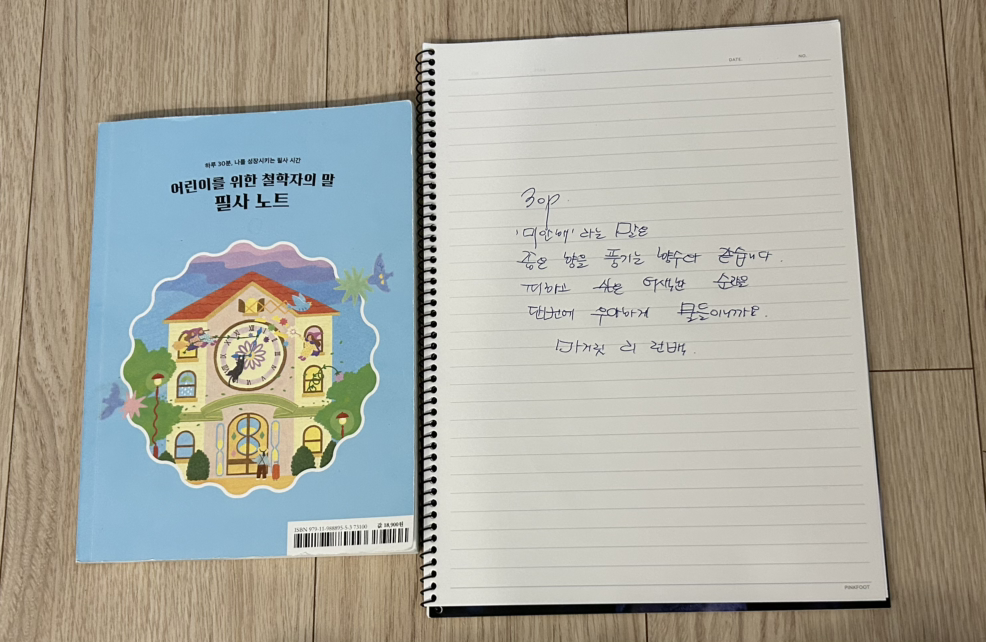 하루 30분, 나를 성장시키는 필사 시간
어린이를 위한 철학자의 말
필사 노트
ISBN 979-11-988895-5-3 73100
값 18,900원
DATE.
NO.
30p.
'미안해' 라는 말은
좋은 향을 풍기는 향수와 같습니다.
피하고 싶은 어색한 순간을
단번에 우아하게 물들이니까요.
마거릿 리 런백.
PINKFOOT